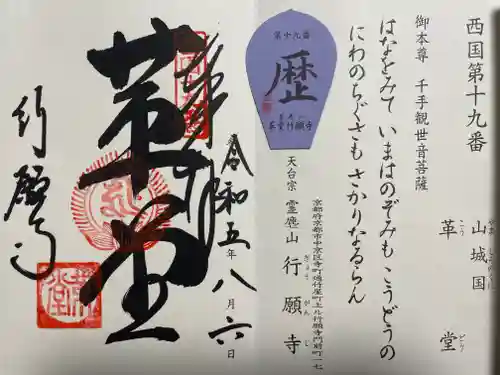 西国第十九番
山城国
やましろのくに
革堂
こうどう
御本尊　千手観世音菩薩
はなをみて いまはのぞみも こうどうの
にわのちぐさも さかりなるらん
第十九番
歴
革堂行願寺
天台宗　霊麀山　行願寺
ぎょうがんじ
京都府京都市中京区寺町通竹屋町上ル行願寺門前町一七
奉拝
令和五年八月六日
革堂
行願寺
革堂